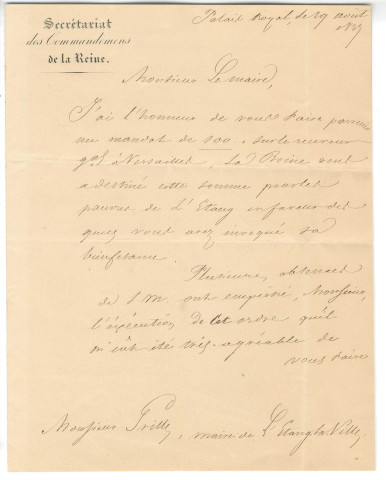 Secrétariat
des Commandemens
de la Reine.
Palais Royal, le 29 août
Monsieur Le maire,
J'ai l'honneur de vous faire parvenir
un mandat de 100 - sur le receveur
gal à Versailles. La Reine veut
a destiné cette somme
pauvres de L'Etang en faveur des
quels vous avez invoqué sa
bienfesance.
Plusieurs absences
de S. M. ont empêché, Monsieur,
l'exécution de cet ordre qu'il
m'eût été très-agréable de
vous faire
Monsieur , maire de L'Etang la Ville